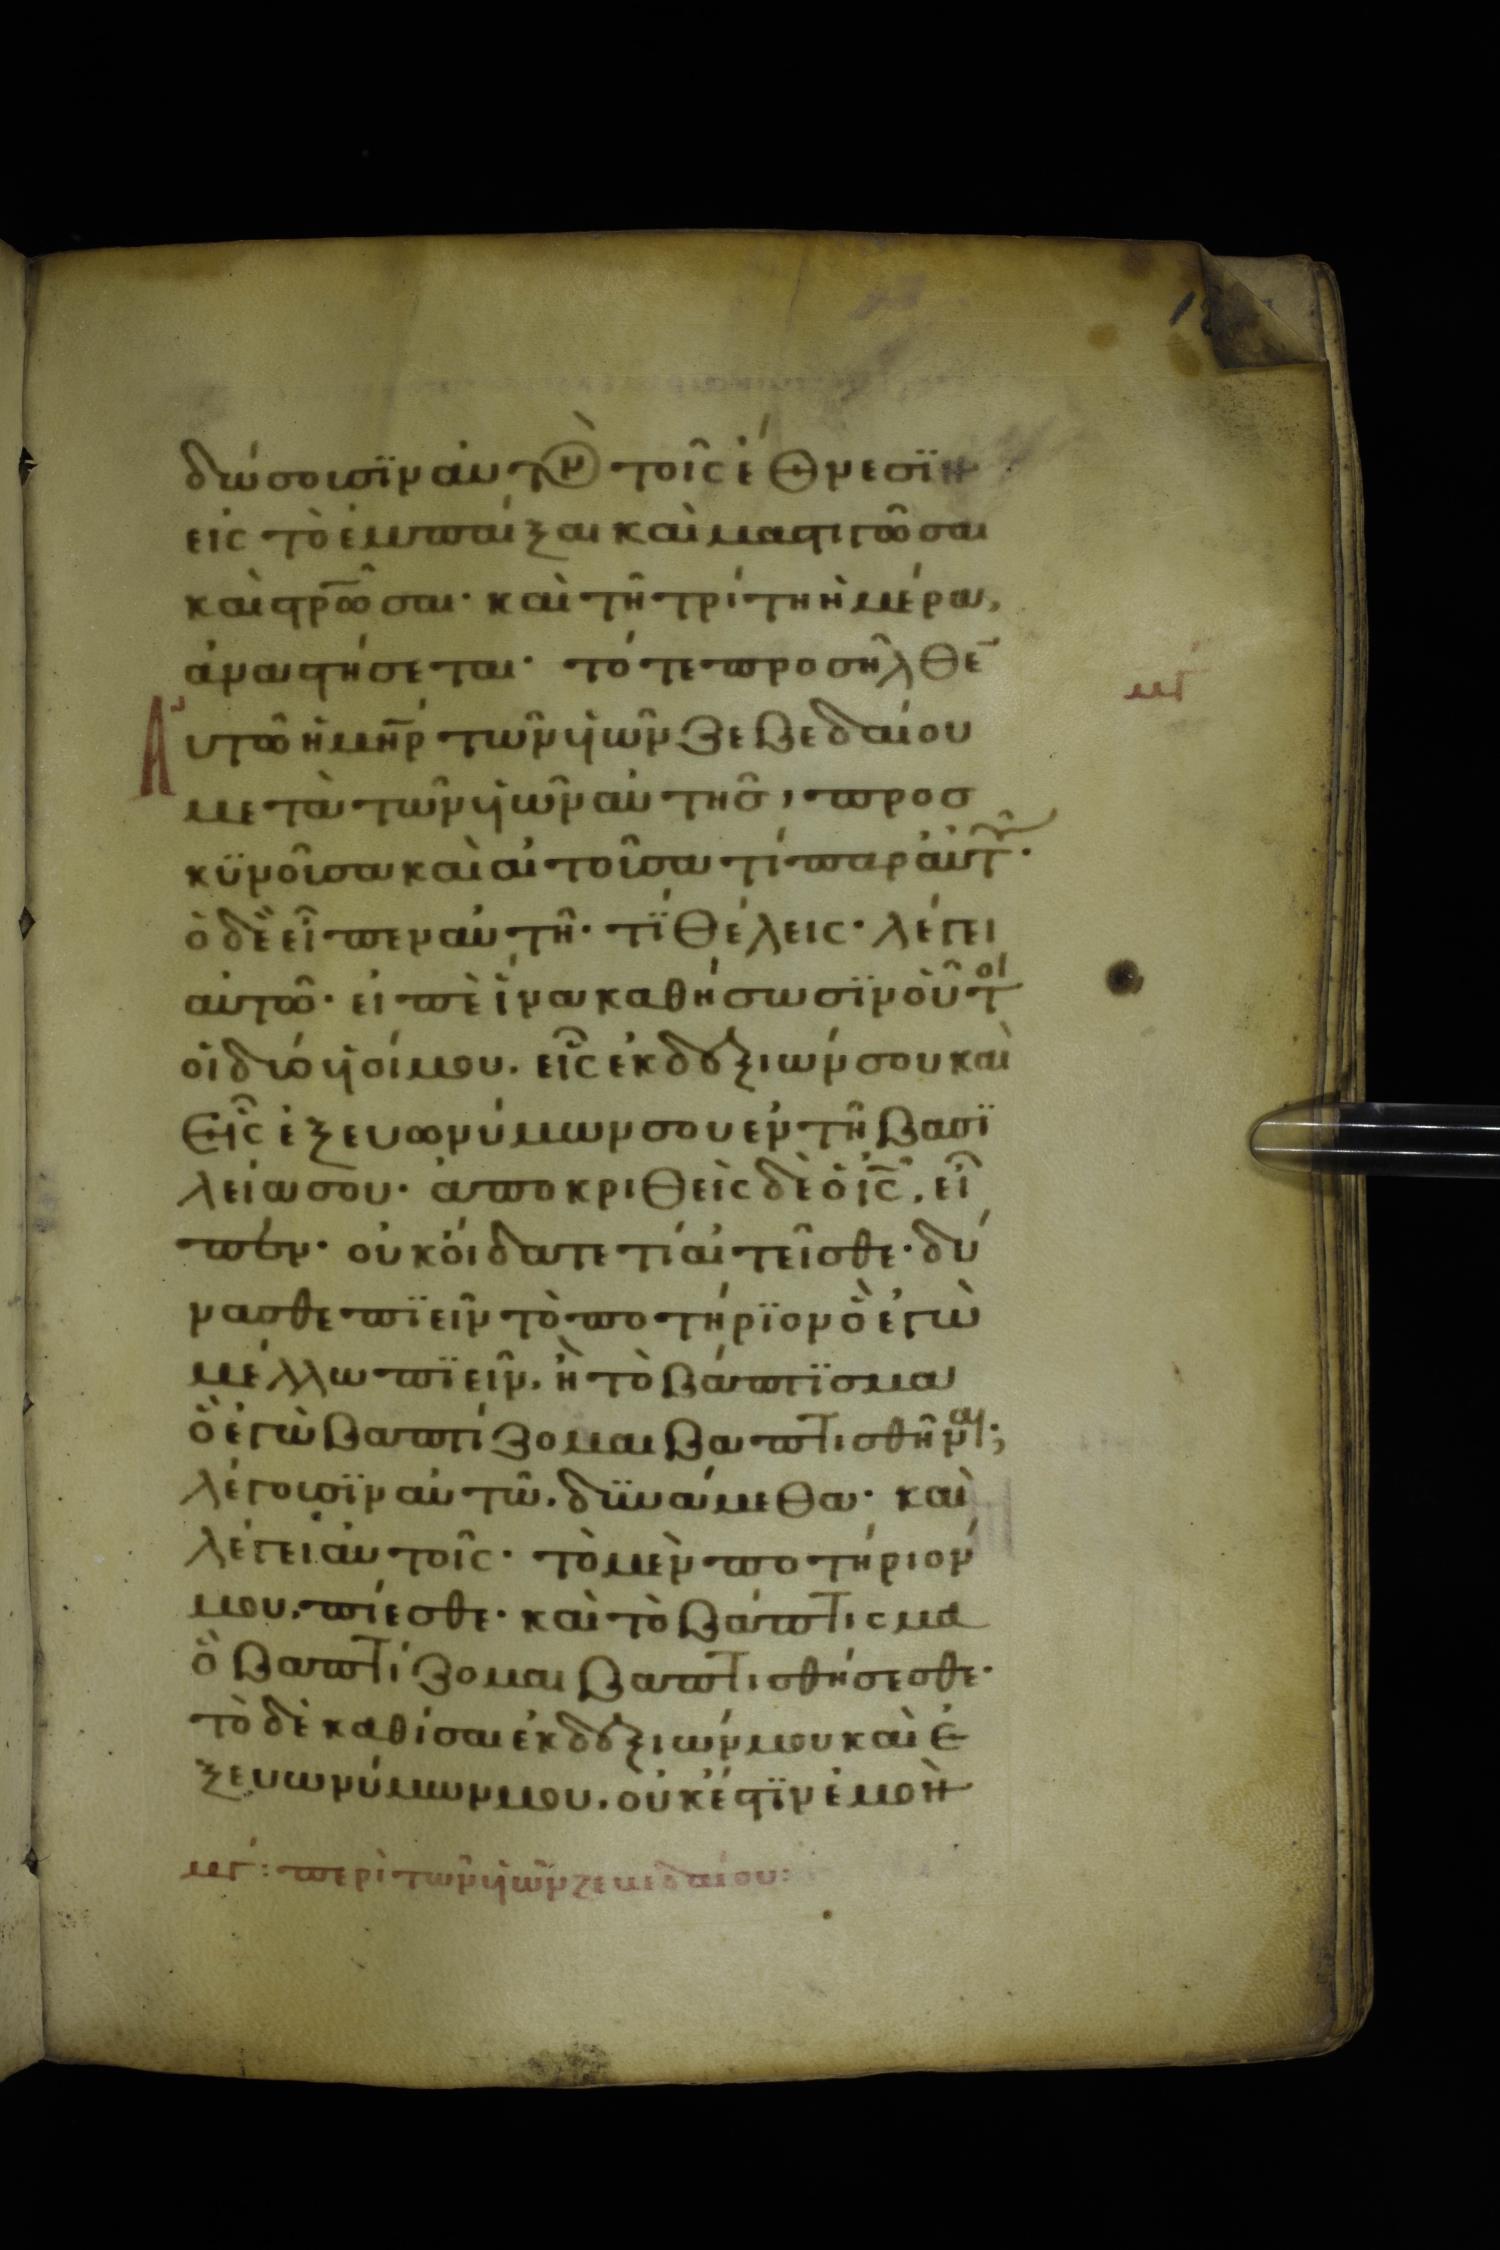 δώσουσϊν αυτὸν τοῖς ἔθνεσϊν
εἰς τὸ ἐμπαίξαι καὶ μαστιγῶσαι
καὶ στρῶσαι· καὶ τῆ τρίτη ἡμέρα,
ἀναστήσεται· τότε προσῆλθεν
Αυτῶ ἡ μηρ τῶν ϋἱῶν Ζεβεδαίου
μετὰ τῶν ὑἱῶν αὐτῆσ, προσ
κϋνοῦσα καὶ αἰτοῦσα τί παρ αὐτοῦ·
ὁ δὲ εἶπεν αὐτῆ· τί θέλεις· λέγει
αὐτῶ· εἰπὲ ἵνα καθήσωσϊν οὗτοι
οἱ δύο ὑϊοί μου. εἷς ἐκ δεξιών σου καὶ
εἷς ἐξ ευωνύμων σου ἐν τῆ βασϊ
λεία σου· ἀποκριθεὶς δὲ ὁ ις, εἶ
πεν· οὐκ οἴδατε τί αἰτεῖσθε· δύ
νασθε πϊεῖν τὸ ποτήρϊον ὃ ἐγὼ
μέλλω πϊεῖν. ἢ τὸ βάπτϊσμα
ὃ ἐγὼ βαπτίζομαι βαπτισθῆναι;
λέγουσϊν αὐτῶ. δϋνάμεθα· καὶ
λέγει αὐτοῖς· τὸ μὲν ποτήριον
μου. πίεσθε· καὶ τὸ βάπτισμα
ὃ βαπτίζομαι βαπτισθήσεσθε·
τὸ δὲ καθίσαι ἐκ δεξιών μου καὶ ἐ
ξευωνύμων μου. οὐκ ἔστϊν ἐμὸν
μγ: περὶ τῶν ϋἱῶν ζεβεδαίου: